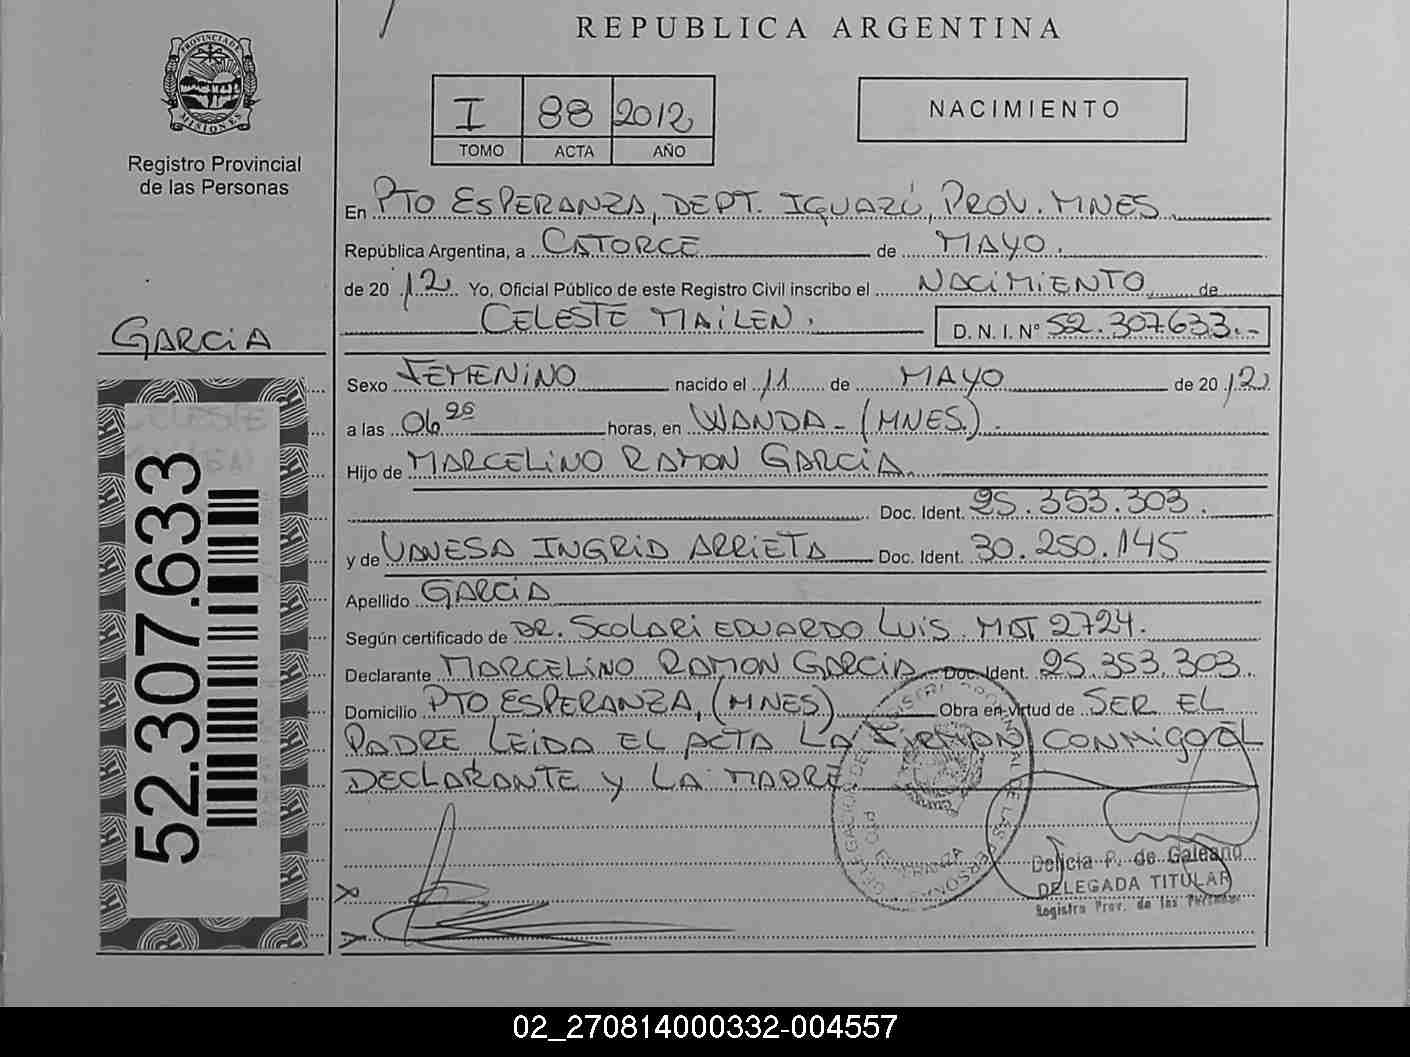 REPUBLICA ARGENTINA
PROVINCIA DE
MISIONES
Registro Provincial
de las Personas
I 88 2012
TOMO ACTA AÑO
NACIMIENTO
En PTO ESPERANZA, DEPT. IGUAZÚ, PROV. MNES
República Argentina, a CATORCE de MAYO.
de 20 12 Yo, Oficial Público de este Registro Civil inscribo el NACIMIENTO de
CELESTE MAILEN. D. N. I. N° 52.307.633.-
GARCIA
CELESTE
52.307.633
Sexo FEMENINO nacido el 11 de MAYO de 20 12
a las 06 25 horas, en WANDA - (MNES.).
Hijo de MARCELINO RAMON GARCIA.
Doc. Ident. 25.353.303.
y de VANESA INGRID ARRIETA Doc. Ident. 30.250.145
Apellido GARCIA
Según certificado de DR. SCOLARI EDUARDO LUIS. MAT 2724.
Declarante MARCELINO RAMON GARCIA Doc. Ident. 25.353.303.
Domicilio PTO ESPERANZA, (MNES) Obra en virtud de SER EL
PADRE LEIDA EL ACTA LA FIRMAN CONMIGO EL
DECLARANTE Y LA MADRE.
PTO ESPERANZA
Delicia P. de Galeano
DELEGADA TITULAR
Registro Prov. de las Personas
02_270814000332-004557